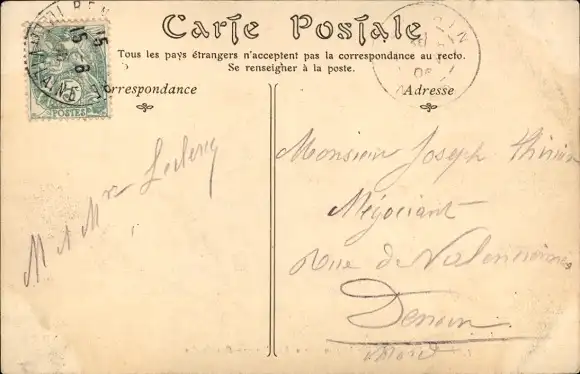 Carte Postale
Tous les pays étrangers n'acceptent pas la correspondance au recto.
Se renseigner à la poste.
rrespondance
Adresse
POSTES
15
8
M et Mme Leclercq
Monsieur Joseph
Négociant
Rue de Valenciennes
Denain
Nord